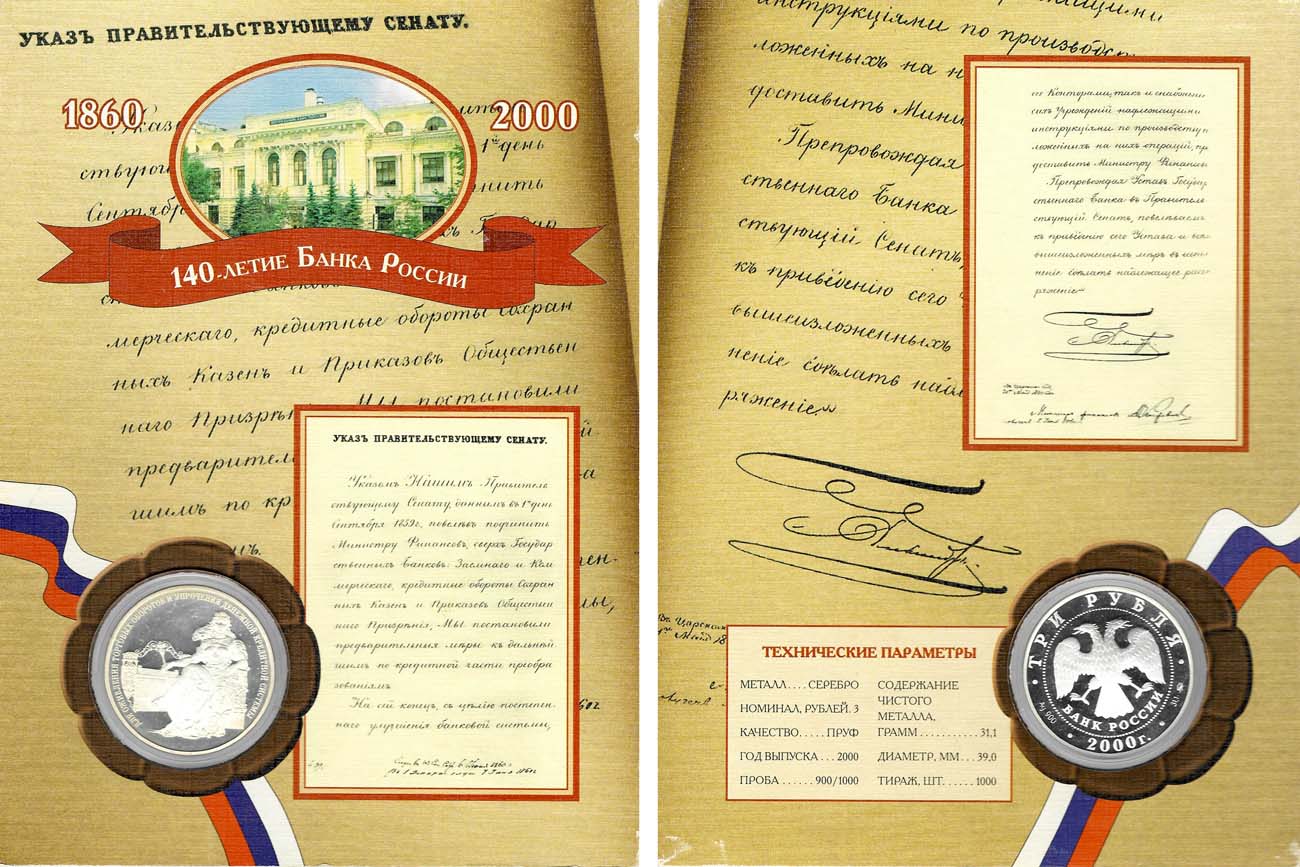 УКАЗЪ ПРАВИТЕЛЬСТВУЮЩЕМУ СЕНАТУ.
1860
2000
140-ЛЕТИЕ БАНКА РОССИИ
ствующ
1й день
Сентябр
мерческаго, кредитные обороты Сохран
ныхъ Казенъ и Приказовъ Обществен
наго Призрѣн
Мы постановили
предварител
шимъ по кр
УКАЗЪ ПРАВИТЕЛЬСТВУЮЩЕМУ СЕНАТУ.
Указомъ Нашимъ Правителе
ствующему Сенату, даннымъ въ 1й день
Сентября 1859г., повелѣвъ подчинить
Министру Финансовъ, сверхъ Государ
ственныхъ Банковъ: Заемнаго и Ком
мерческаго, кредитные обороты Сохран
ныхъ Казенъ и Приказовъ Обществен
наго Призрѣнія, Мы постановили
предварительныя мѣры къ дальнѣй
шимъ по кредитной части преобра
зованіямъ.
На сей конецъ, съ цѣлію постепен-
наго улучшенія банковой системы,
ДЛЯ ОЖИВЛЕНИЯ ТОРГОВЫХ ОБОРОТОВ И УПРОЧЕНИЯ ДЕНЕЖНОЙ КРЕДИТНОЙ СИСТЕМЫ
инструкціями по производст
ложенныхъ на н
доставить Мини
Препровождая
ственнаго Банка
ствующій Сенатъ,
къ приведенію сего
вышеизложенныхъ
неніе сдѣлать над
ряженіе.
Конторами, такъ и снабжені
сихъ Учрежденій надлежащими
инструкціями по производству
ложенныхъ на нихъ операцій, пр
доставить Министру Финансов
Препровождая Уставъ Госуд
ственнаго Банка въ Правителе
ствующій Сенатъ, повелѣваемъ
къ приведенію сего Устава и вс
вышеизложенныхъ мѣръ въ испол
неніе сдѣлать надлежащее расп
ряженіе.
Въ Царском
ТЕХНИЧЕСКИЕ ПАРАМЕТРЫ
МЕТАЛЛ.... СЕРЕБРО
НОМИНАЛ, РУБЛЕЙ. 3
КАЧЕСТВО..... ПРУФ
ГОД ВЫПУСКА... 2000
ПРОБА ...... 900/1000
СОДЕРЖАНИЕ
ЧИСТОГО
МЕТАЛЛА,
ГРАММ ........... 31,1
ДИАМЕТР, ММ... 39,0
ТИРАЖ, ШТ. ...... 1000
ТРИ РУБЛЯ
БАНК РОССИИ
Ag 900
31,1
• 2000г. •